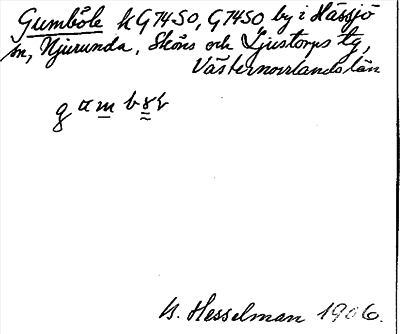 Gumbåle k G7450, G7450 by i Hässjö
sn, Njurunda, Sköns och Ljustorps tg,
Västernorrlands län
B. Hesselman 1906.